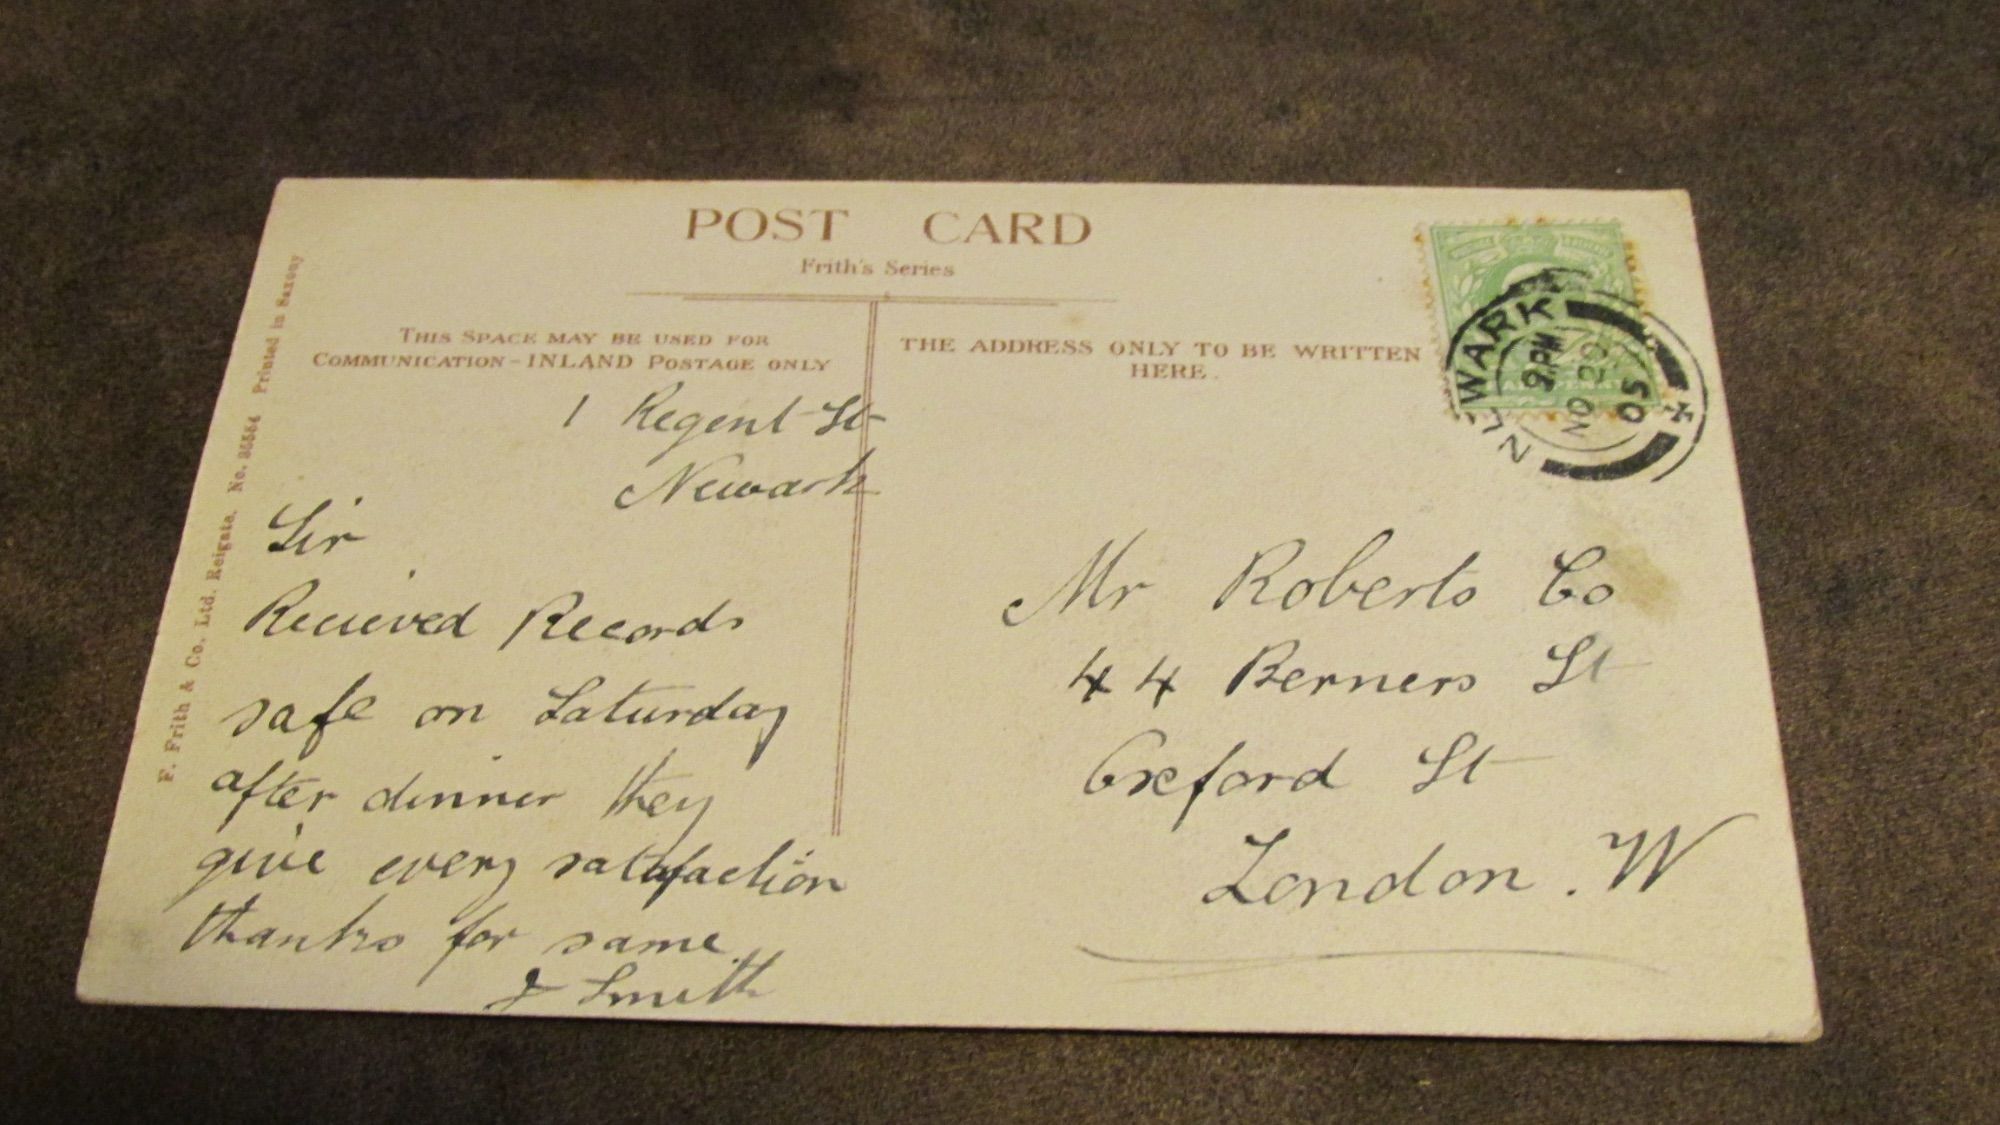 POST CARD
Frith's Series
THIS SPACE MAY BE USED FOR
COMMUNICATION - INLAND POSTAGE ONLY
THE ADDRESS ONLY TO BE WRITTEN
HERE.
F. Frith & Co. Ltd. Reigate. No. 35554 Printed in Saxony
NEWARK
9 PM
NO 20
05
1 Regent St
Newark
Sir
Recieved Records
safe on Saturday
after dinner they
give every satisfaction
thanks for same
J Smith
Mr Roberts Co
44 Berners St
Oxford St
London . W